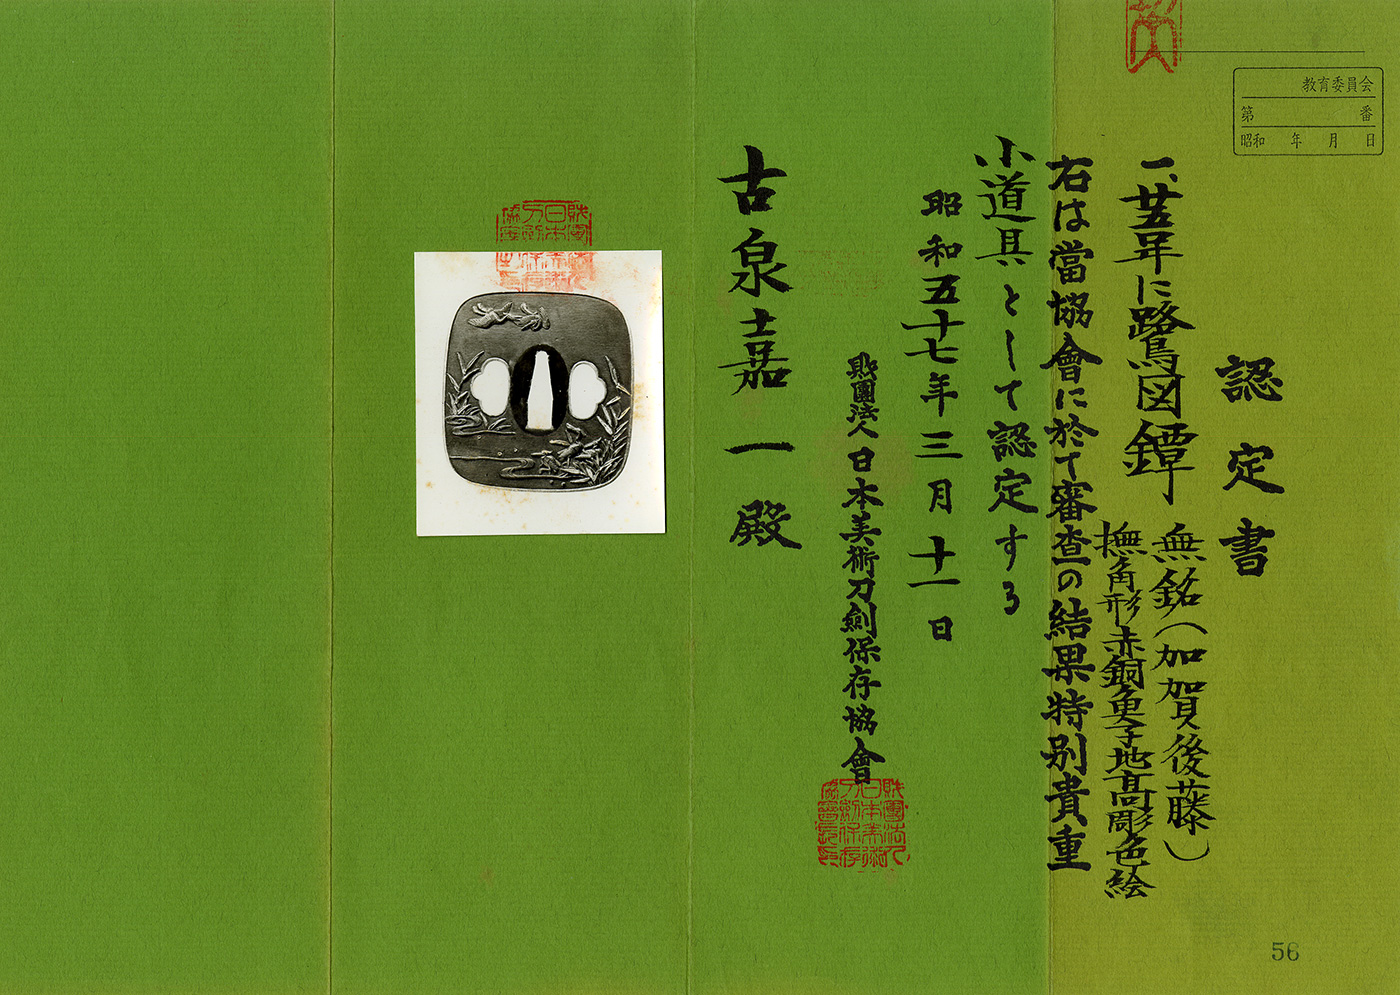 教育委員会
第 番
昭和 年 月 日
認定書
一、葦に鷺図鐔 無銘（加賀後藤）
撫角形赤銅魚子地高彫色絵
右は當協會に於て審査の結果特別貴重
小道具として認定する
昭和五十七年三月十一日
財團法人日本美術刀劍保存協會
古泉嘉一殿
56